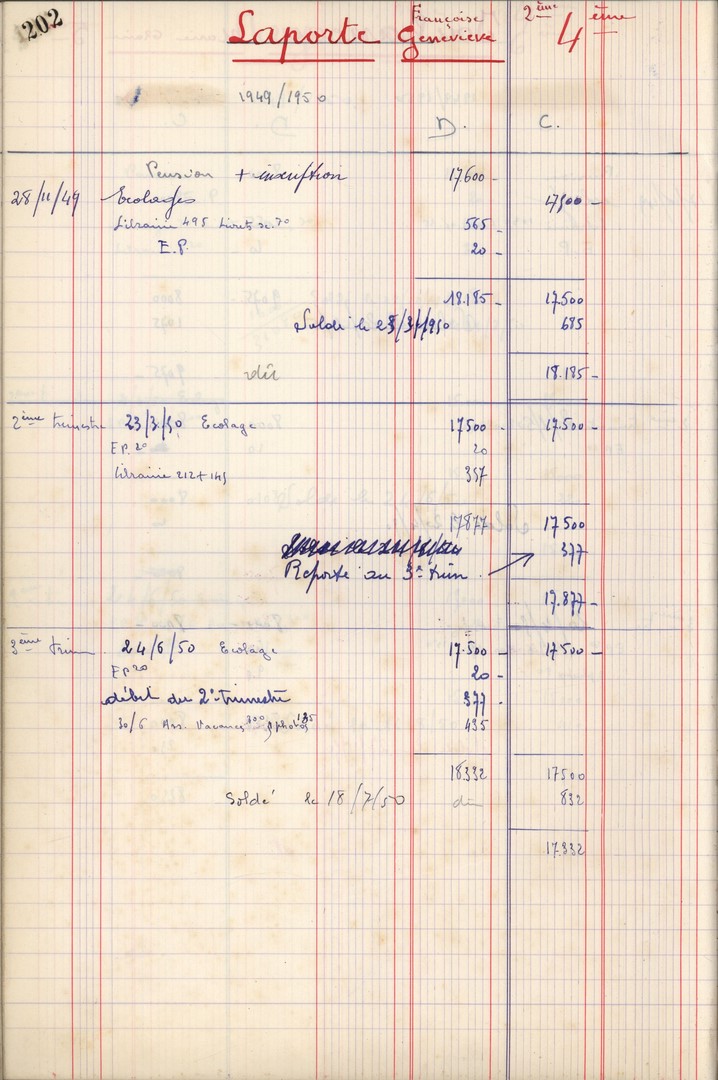 202
Laporte Françoise 2ème
Geneviève 4ème
1949/1950
D. C.
Pension + inscription 17600 -
28/11/49 Ecolages 17500 -
Librairie 495 Livrets sc. 70 565 -
E.P. 20 -
18.185 - 17.500
Soldé le 23/3/1950 685
dû 18.185 -
2ème trimestre 23/3/50 Ecolage 17500 - 17.500 -
EP. 20 20
librairie 212+145 357
17877 17 500
Reporté au 3e trim. 377
17.877 -
3ème trim 24/6/50 Ecolage 17.500 - 17500 -
Ep 20 20 -
débit du 2e trimestre 377 -
30/6 Ass. Vacances 300 photos 135 435
18332 17500
Soldé le 18/7/50 dû 832
17.332